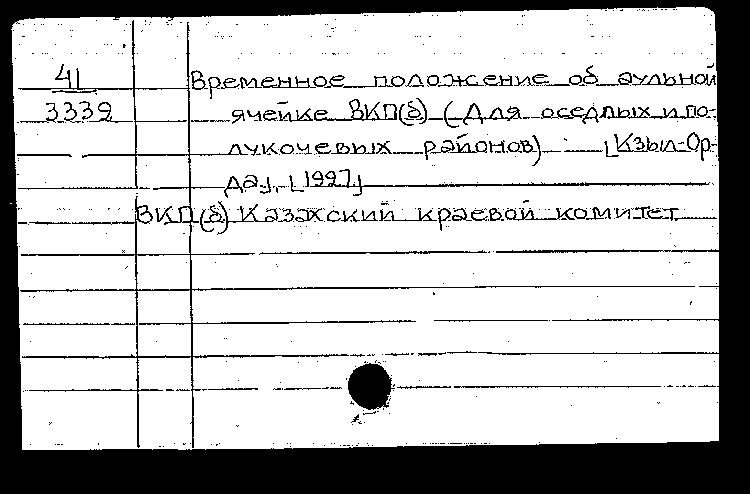 41
3339
Временное положение об аульной
ячейке ВКП(б) (Для оседлых и по-
лукочевых районов) : [Кзыл-Ор-
да], [1927]
ВКП(б) Казахский краевой комитет